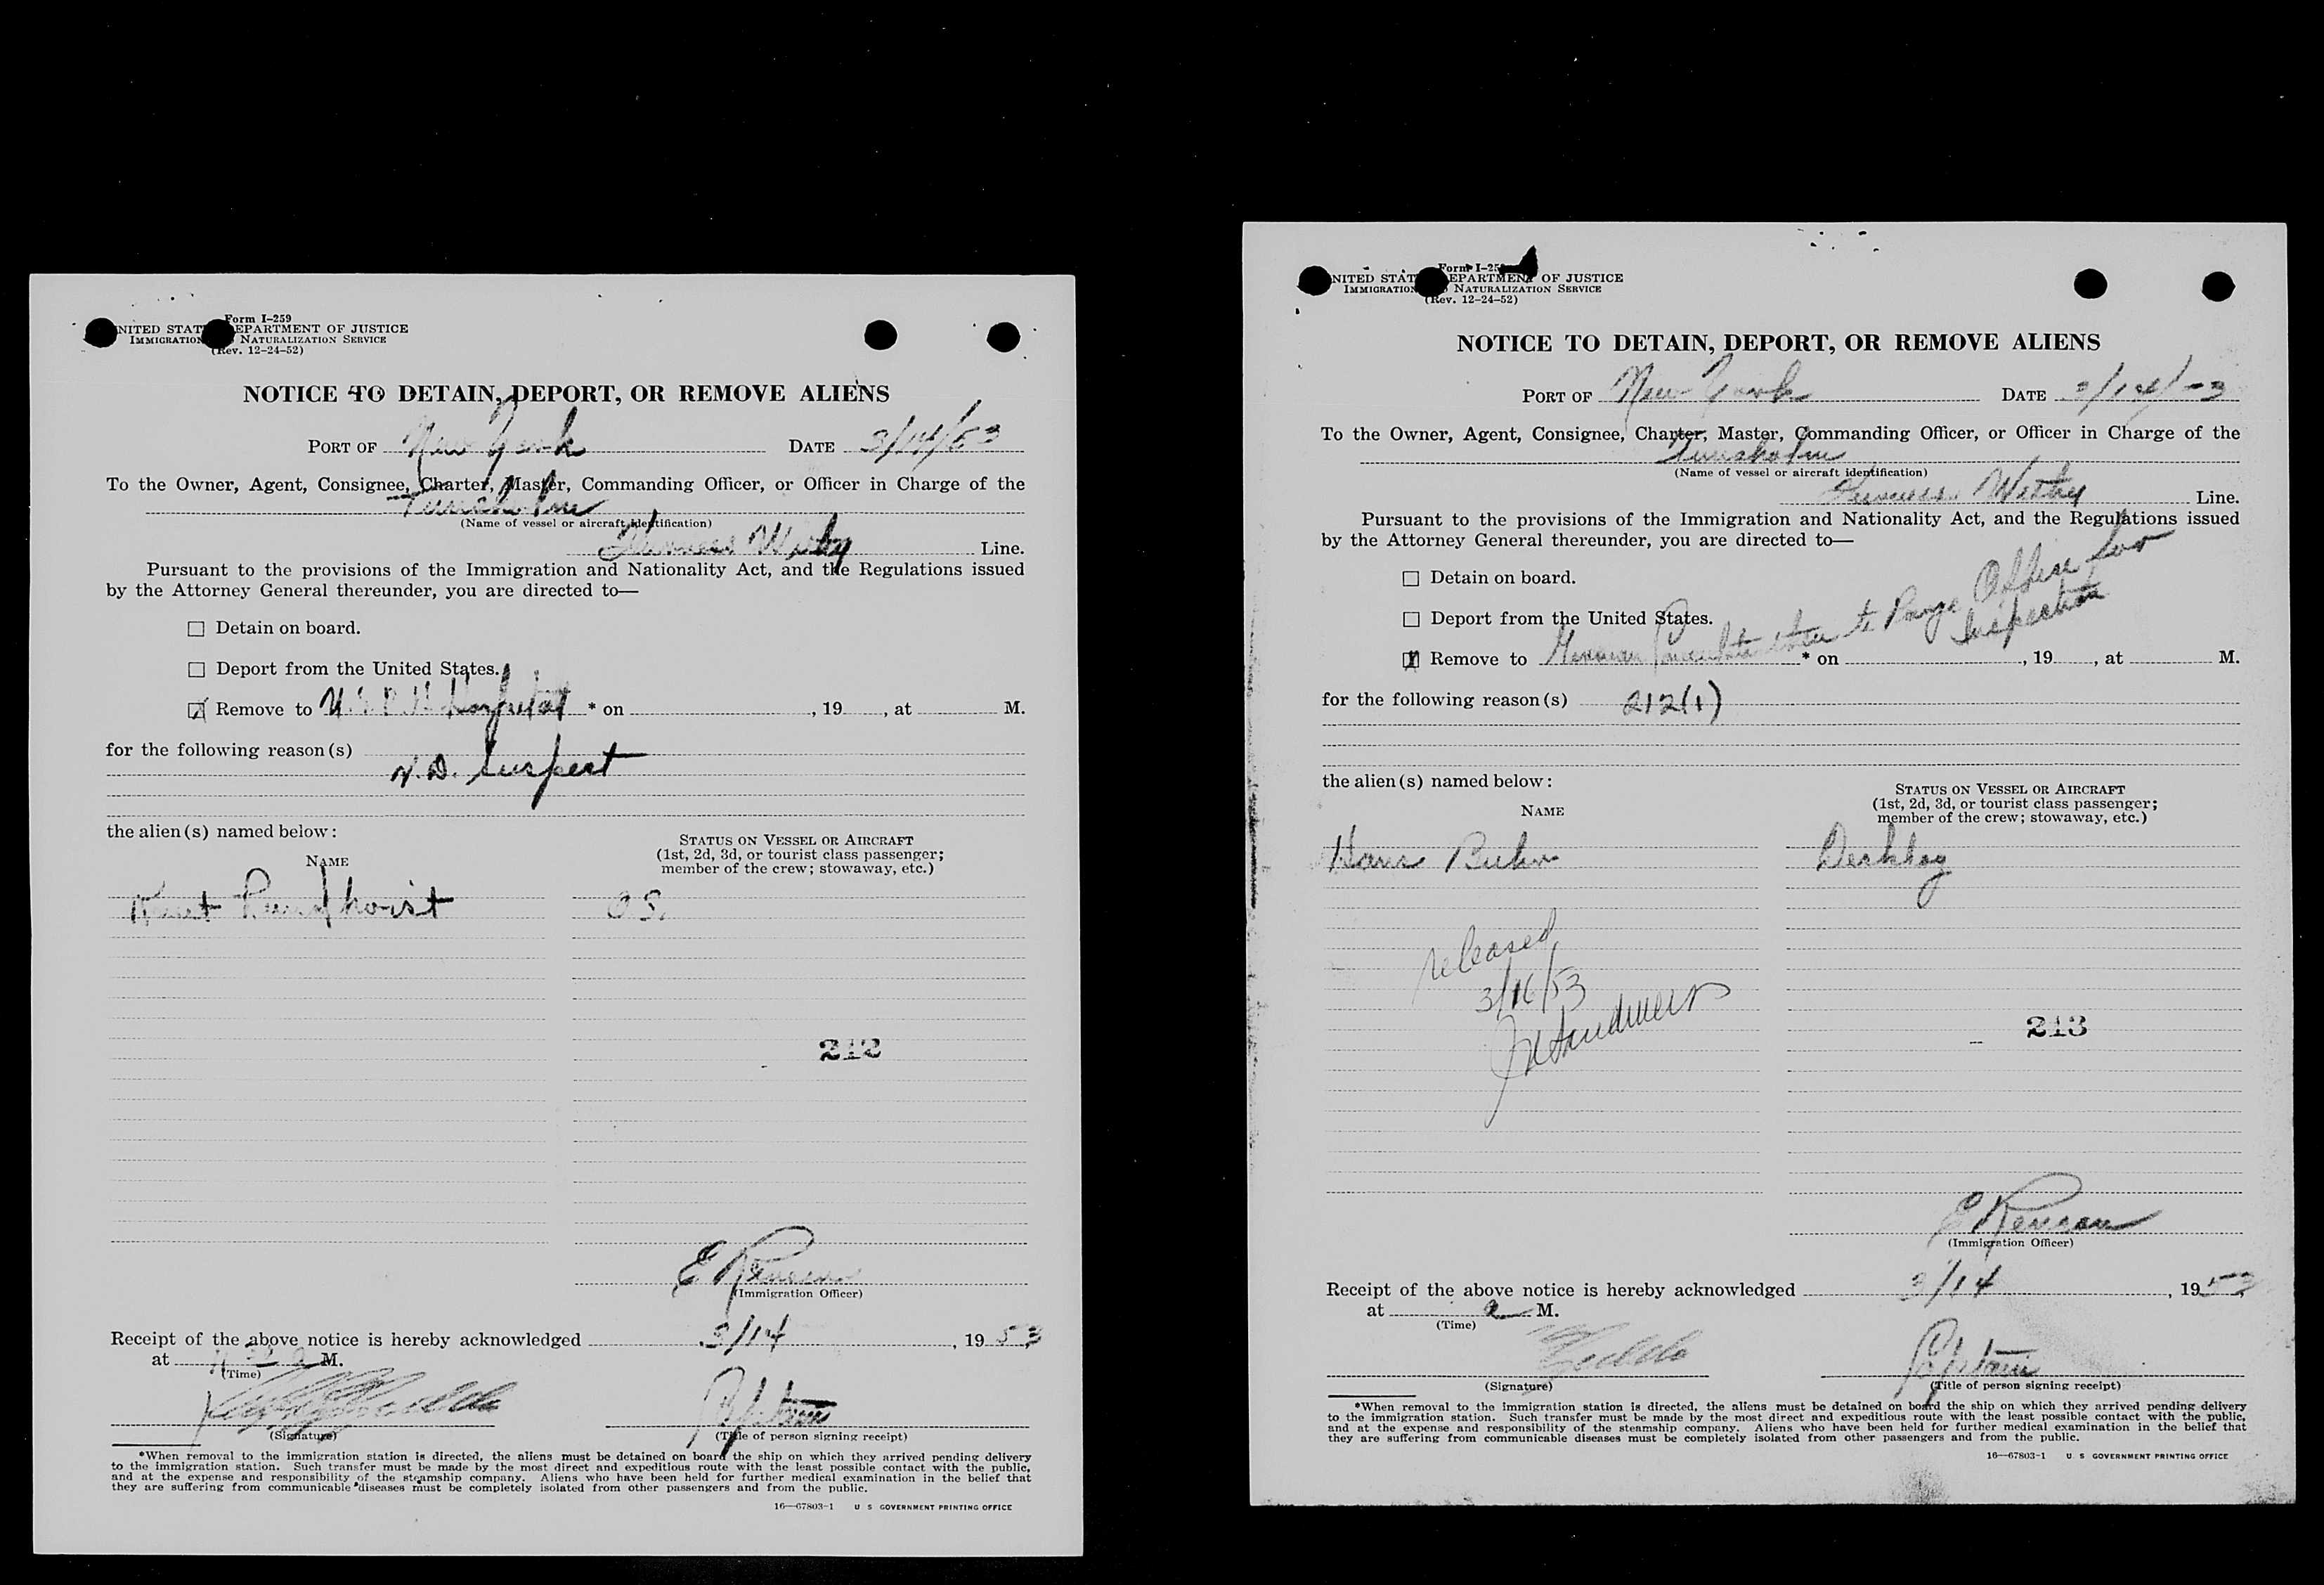 Form I-259
UNITED STATES DEPARTMENT OF JUSTICE
IMMIGRATION NATURALIZATION SERVICE
(Rev. 12-24-52)
NOTICE TO DETAIN, DEPORT, OR REMOVE ALIENS
PORT OF New York DATE 3/14/53
To the Owner, Agent, Consignee, Charter, Master, Commanding Officer, or Officer in Charge of the
(Name of vessel or aircraft identification)
Furness Withy Line.
Pursuant to the provisions of the Immigration and Nationality Act, and the Regulations issued
by the Attorney General thereunder, you are directed to—
☐ Detain on board.
☐ Deport from the United States.
☒ Remove to U.S.P.H. Hospital * on , 19 , at M.
for the following reason(s)
V.D. Suspect
the alien(s) named below:
NAME
STATUS ON VESSEL OR AIRCRAFT
(1st, 2d, 3d, or tourist class passenger;
member of the crew; stowaway, etc.)
O.S.
212
(Immigration Officer)
Receipt of the above notice is hereby acknowledged 3/14, 1953
at M.
(Time)
(Signature)
(Title of person signing receipt)
*When removal to the immigration station is directed, the aliens must be detained on board the ship on which they arrived pending delivery
to the immigration station. Such transfer must be made by the most direct and expeditious route with the least possible contact with the public,
and at the expense and responsibility of the steamship company. Aliens who have been held for further medical examination in the belief that
they are suffering from communicable diseases must be completely isolated from other passengers and from the public.
16—67803-1 U S GOVERNMENT PRINTING OFFICE
Form I-259
UNITED STATES DEPARTMENT OF JUSTICE
IMMIGRATION NATURALIZATION SERVICE
(Rev. 12-24-52)
NOTICE TO DETAIN, DEPORT, OR REMOVE ALIENS
PORT OF New York DATE 3/14/53
To the Owner, Agent, Consignee, Charter, Master, Commanding Officer, or Officer in Charge of the
(Name of vessel or aircraft identification)
Furness Withy Line.
Pursuant to the provisions of the Immigration and Nationality Act, and the Regulations issued
by the Attorney General thereunder, you are directed to—
☐ Detain on board.
☐ Deport from the United States.
☒ Remove to German to Office for Inspection * on , 19 , at M.
for the following reason(s) 212(1)
the alien(s) named below:
NAME
STATUS ON VESSEL OR AIRCRAFT
(1st, 2d, 3d, or tourist class passenger;
member of the crew; stowaway, etc.)
Hans Buhr Deckboy
released
3/16/53
213
(Immigration Officer)
Receipt of the above notice is hereby acknowledged 3/14, 1953
at a M.
(Time)
(Signature)
(Title of person signing receipt)
*When removal to the immigration station is directed, the aliens must be detained on board the ship on which they arrived pending delivery
to the immigration station. Such transfer must be made by the most direct and expeditious route with the least possible contact with the public,
and at the expense and responsibility of the steamship company. Aliens who have been held for further medical examination in the belief that
they are suffering from communicable diseases must be completely isolated from other passengers and from the public.
16—67803-1 U S GOVERNMENT PRINTING OFFICE